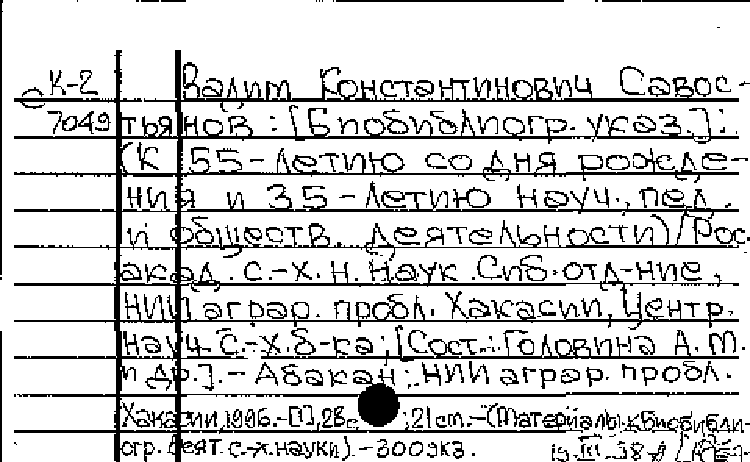 К-2 Вадим Константинович Савос-
7049 тьянов : [Биобиблиогр. указ.] :
(К 55-летию со дня рожде-
ния и 35-летию науч., пед.
и обществ. деятельности) / Рос.
акад. с.-х. н. наук. Сиб. отд-ние,
НИИ аграр. пробл. Хакасии, Центр.
науч. с.-х. б-ка ; [Сост.: Головина А. М.
и др.]. - Абакан : НИИ аграр. пробл.
Хакасии, 1996. - [1], 28 с. ; 21 см. - (Материалы к биобибли-
огр. деят. с.-х. науки). - 300 экз.